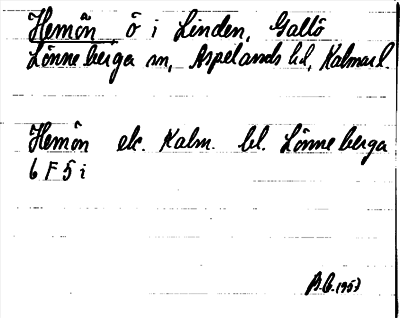 Hemön ö i Linden, Gallö
Lönneberga sn, Aspelands hd, Kalmar l.
Hemön ek. Kalm. bl. Lönneberga
6 F 5 i
B.C. 1953